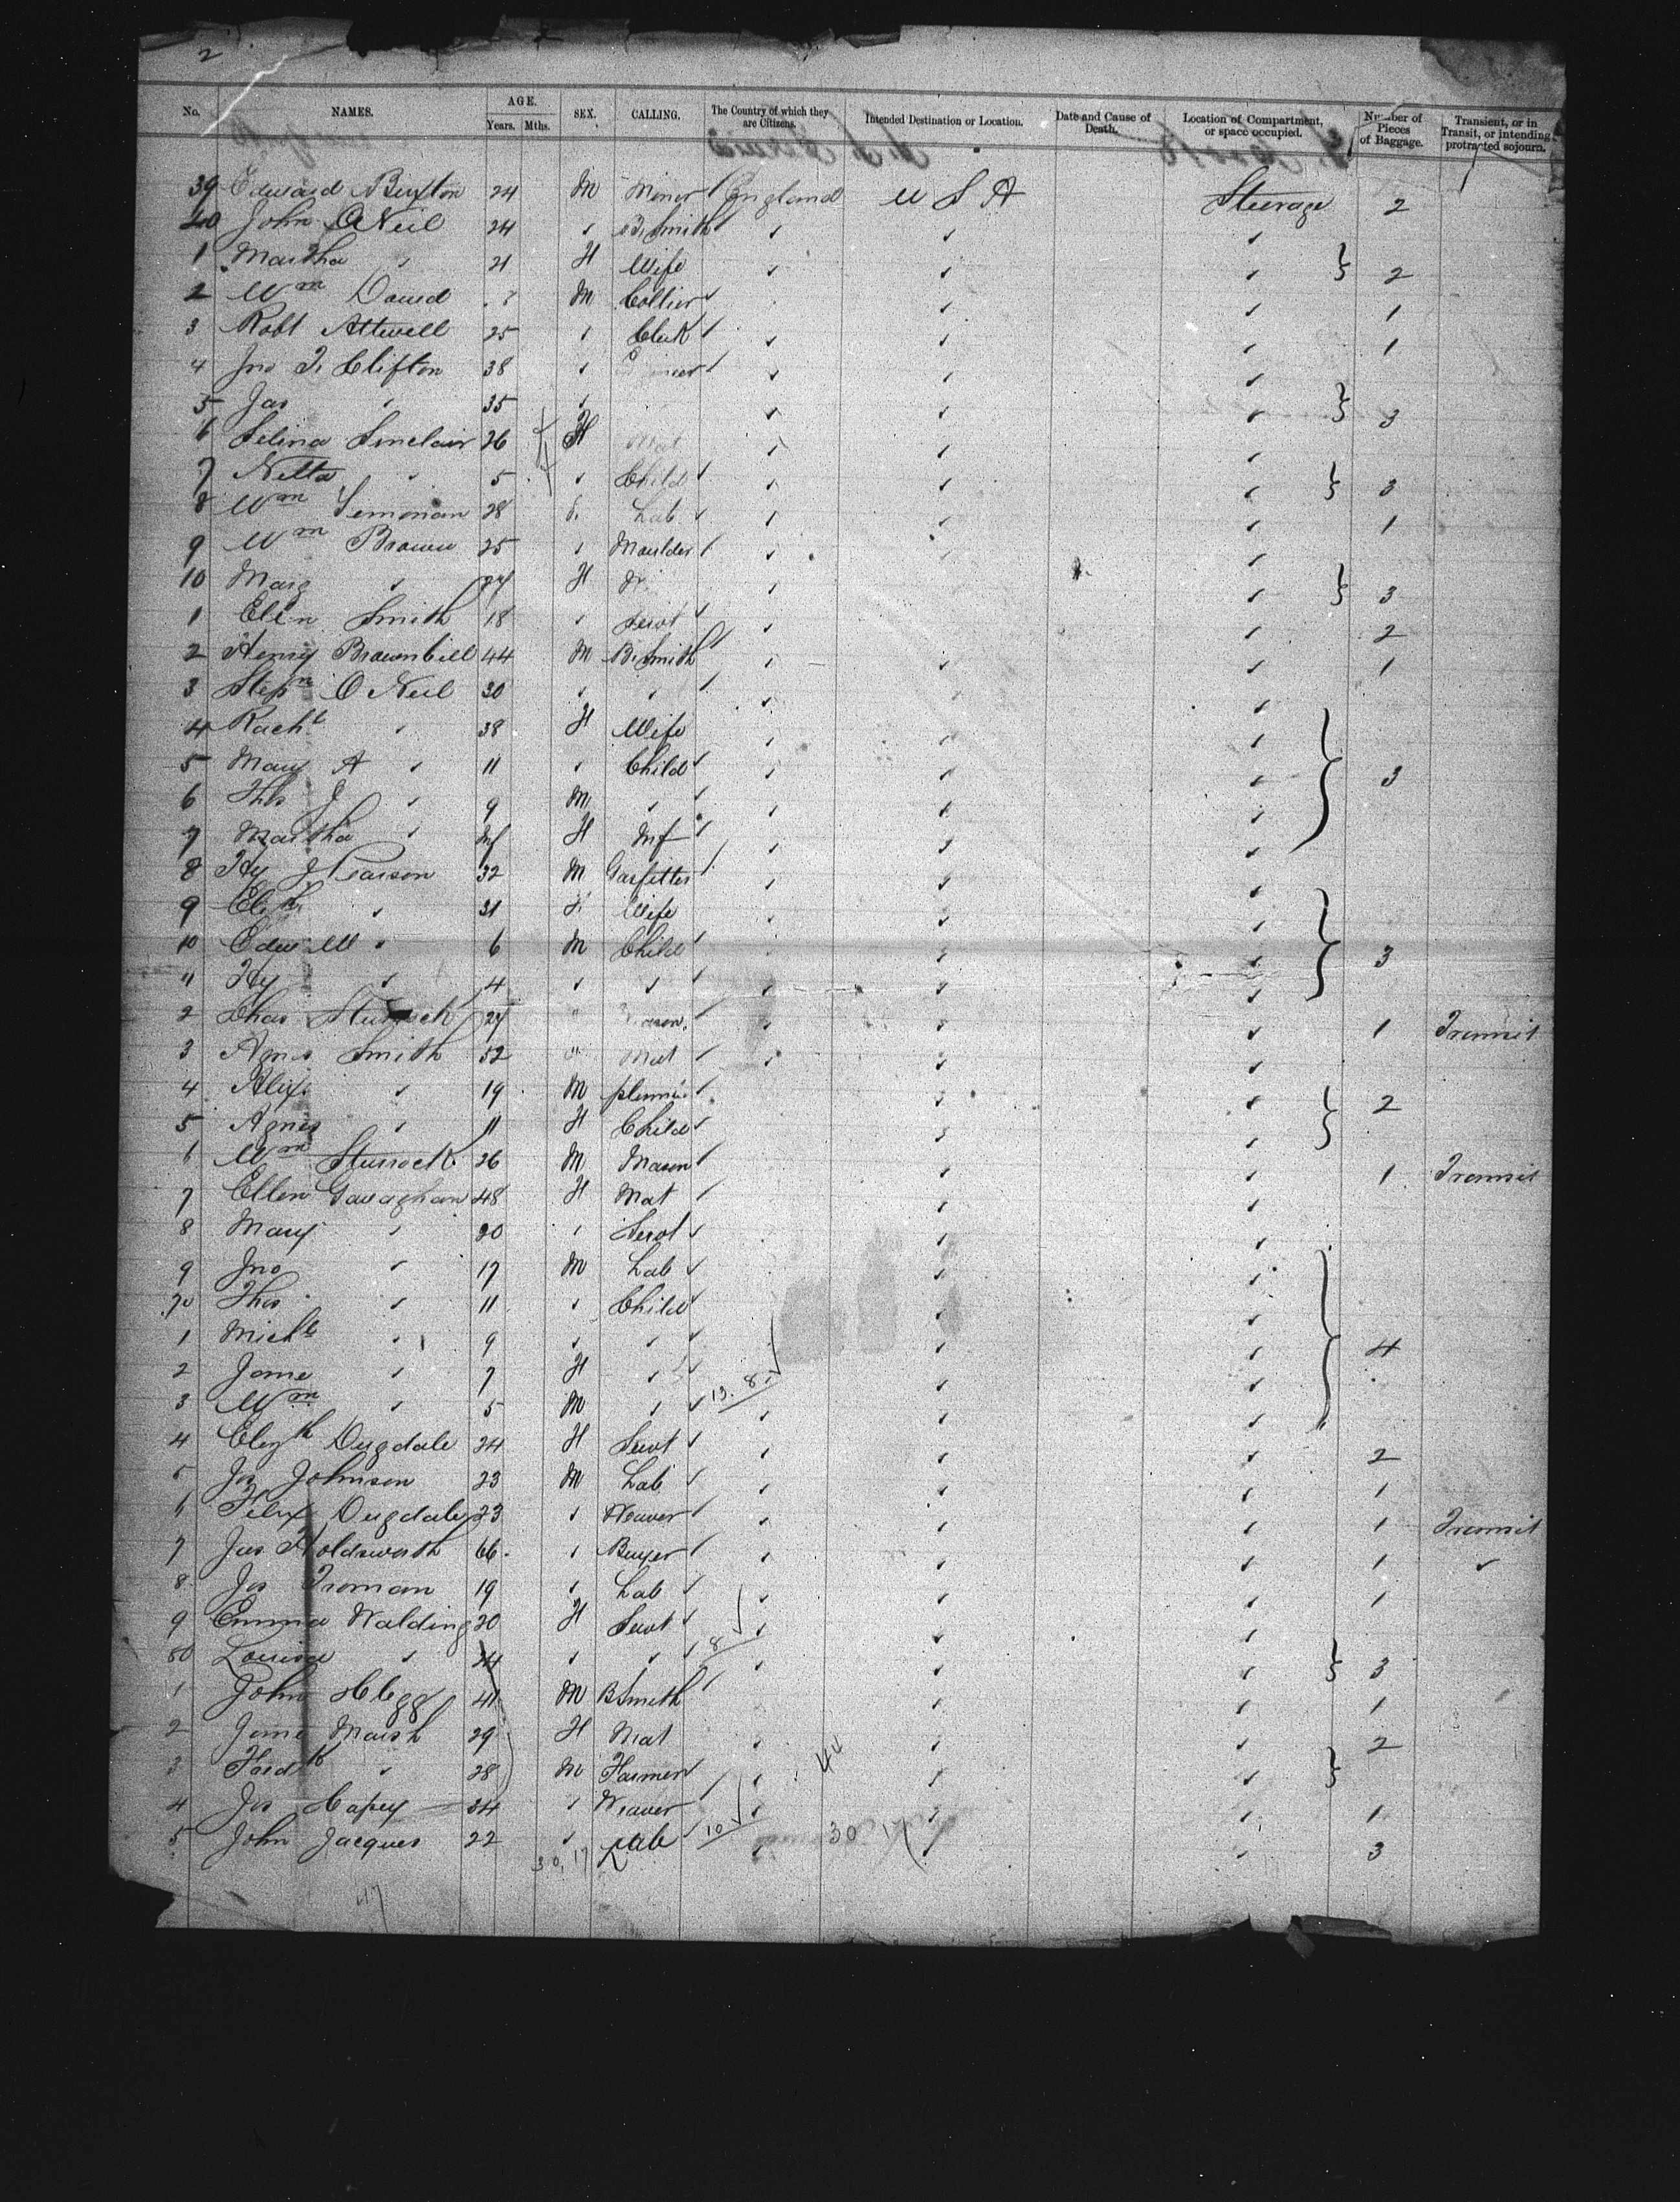 2
No. NAMES. AGE. Years. Mths. SEX. CALLING. The Country of which they are Citizens. Intended Destination or Location. Date and Cause of Death. Location of Compartment, or space occupied. Number of Pieces of Baggage. Transient, or in Transit, or intending protracted sojourn.
39 Edward Buxton 24 M Miner England U S A Steerage 2
40 John O Neil 24 " B. Smith
1 Martha " 21 F Wife 2
2 Wm David M Collier 1
3 Robt Attwell 25 " Clerk 1
4 Jno T. Clifton 38 "
5 Jas " 35 " 3
6 Selina Sinclair 26 F Mat
7 Netta " 5 " Child 3
8 Wm 28 Lab 1
9 Wm Brown 25 " Moulder
10 Marg " 27 F 3
1 Ellen Smith 18 " Servt 2
2 Henry Brownbill 44 M B. Smith 1
3 Stepn O Neil 30 " "
4 Rachl " 38 F Wife
5 Mary A " 11 " Child 3
6 Thos J " 9 M "
7 Martha " Inf F Inf
8 Hy J Pearson 32 M Gasfitter
9 Elizh " 31 F Wife
10 Edw W " 6 M Child 3
11 Hy " 4 " "
2 Chas Sturrock 27 " Mason 1 Transit
3 Agnes Smith 52 " Mat
4 Alex " 19 M 2
5 Agnes " 11 F Child
6 Wm Sturrock 26 M Mason 1 Transit
7 Ellen Gavaghan 48 F Mat
8 Mary " 20 " Servt
9 Jno " 17 M Lab
70 Thos " 11 " Child
1 Michl " 9 " " 4
2 Jane " 7 F "
3 Wm " 5 M " 13. 8
4 Elizth Dugdale 24 F Servt 2
5 Jos Johnson 23 M Lab 1
6 Felix Dugdale 23 " Weaver 1 Transit
7 Jas Holdsworth 66 " Buyer 1 "
8 Jos Troman 19 " Lab 1
9 Emma Walding 20 F Servt
80 Louisa " 24 " " 8 3
1 John Clegg 41 M B Smith 1
2 Jane Marsh 29 F Mat 2
3 Fredk " 28 M Farmer
4 Jos Capey 34 " Weaver 1
5 John Jacques 22 " Lab 10 30 17 3
30, 17
47